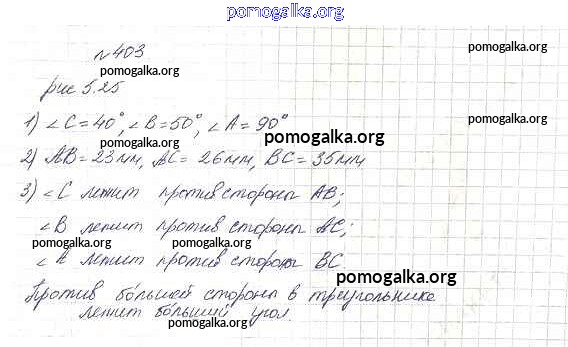 pomogalka.org
№403
pomogalka.org
pomogalka.org
рис 5.25
pomogalka.org
1) ∠C=40°, ∠B=50°, ∠A=90°
pomogalka.org
2) AB=23мм, AC=26мм, BC=35мм
3) ∠C лежит против стороны AB;
pomogalka.org
∠B лежит против стороны AC;
pomogalka.org pomogalka.org
∠A лежит против стороны BC.
pomogalka.org
Против бо́льшей стороны в треугольнике
лежит бо́льший угол.
pomogalka.org pomogalka.org